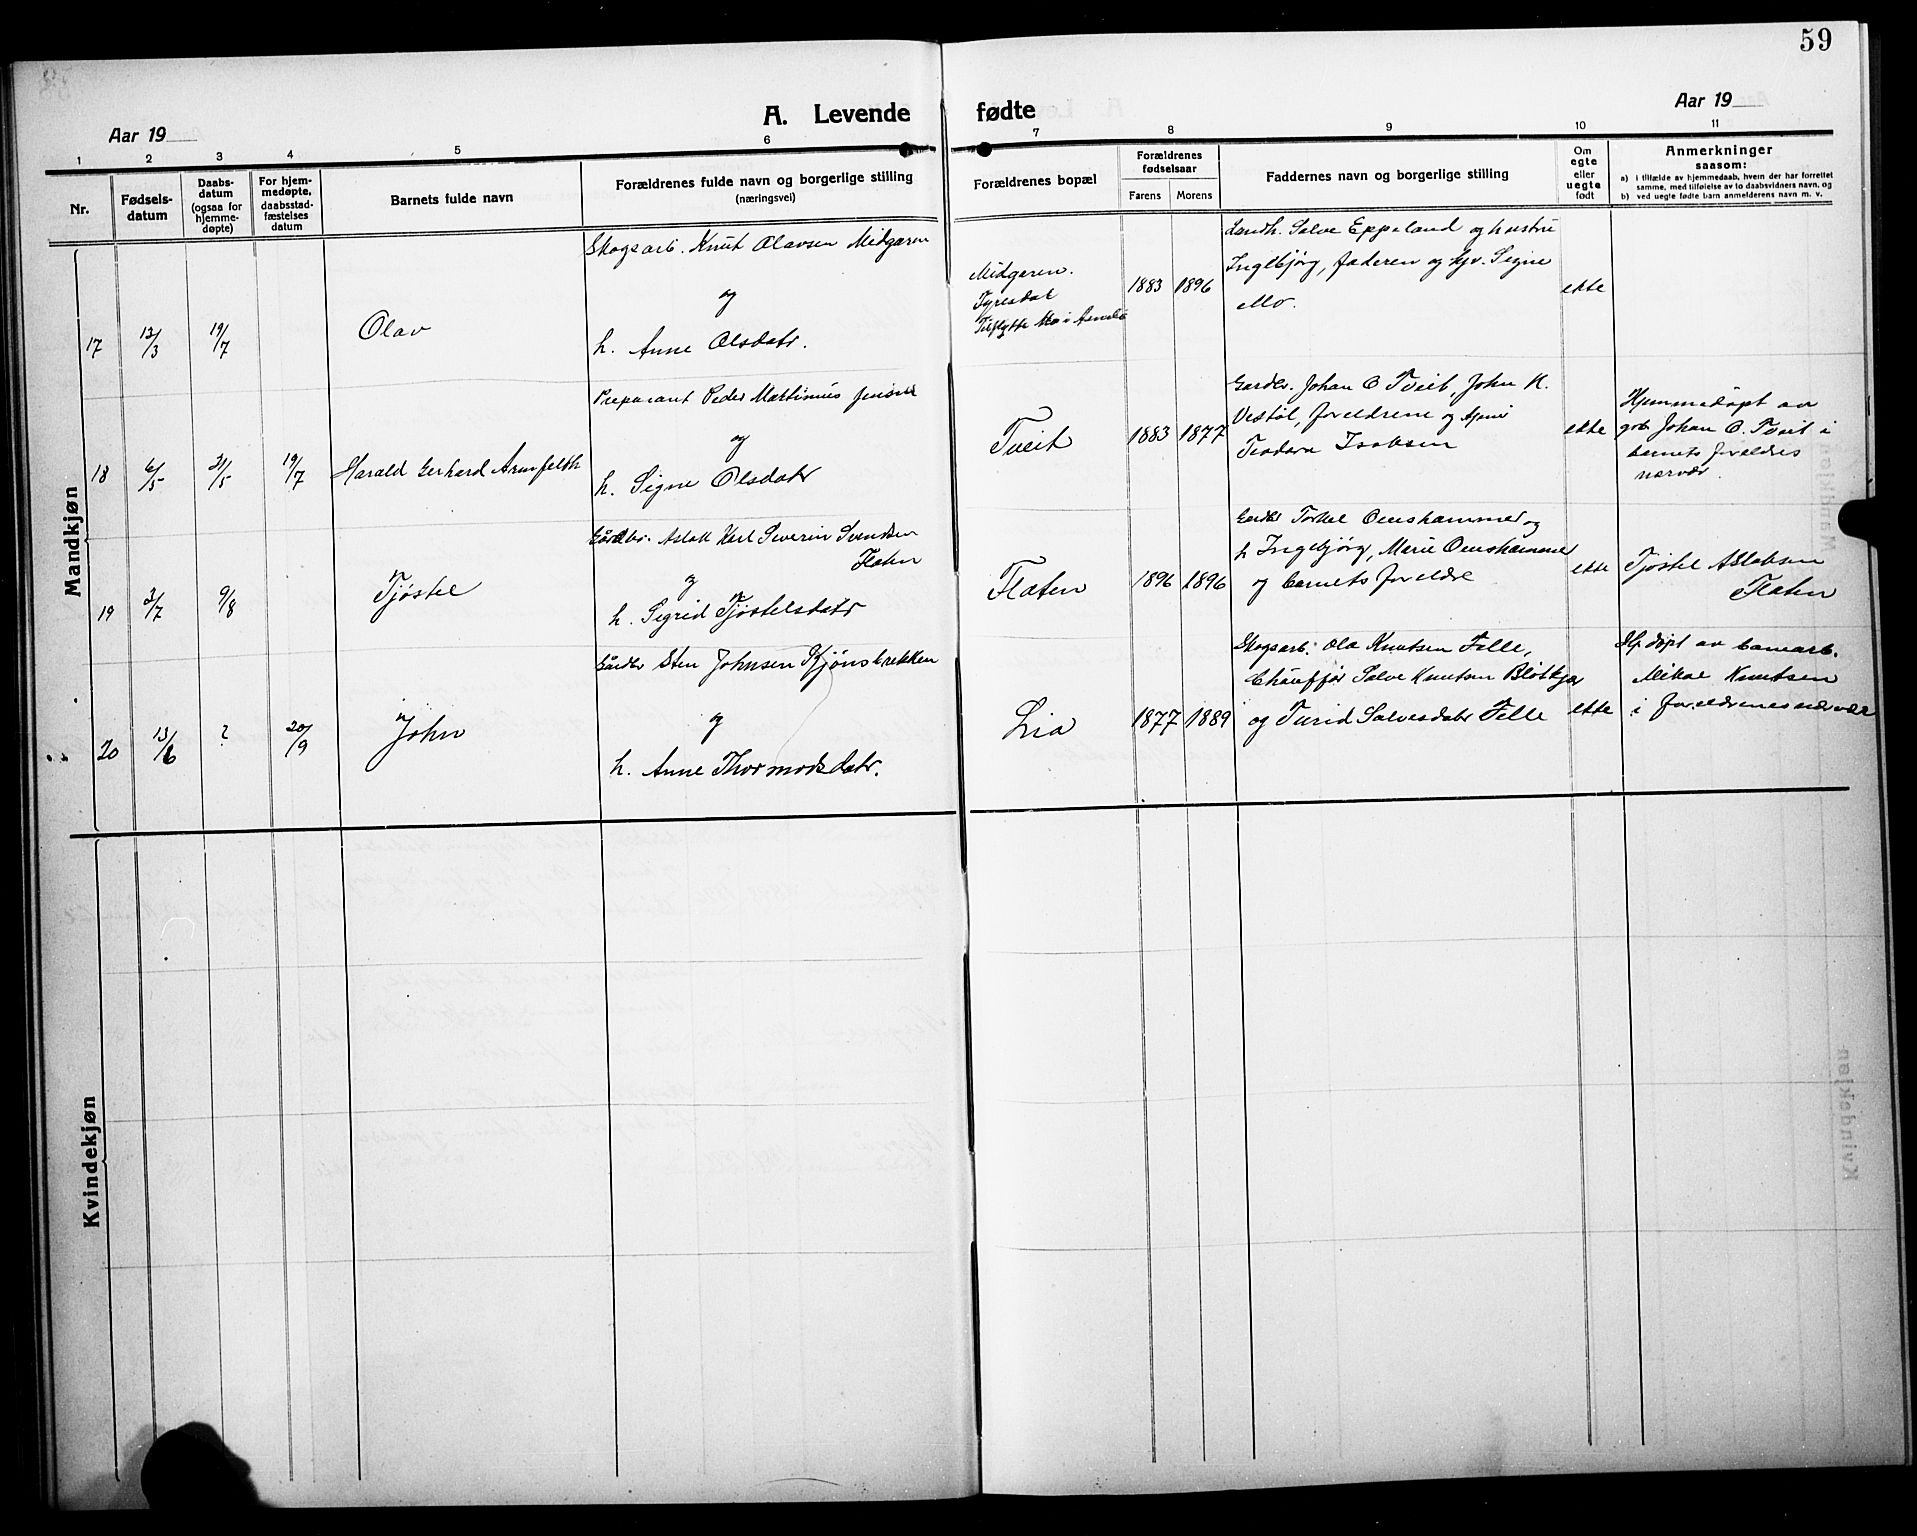 59
A. Levende fødte
Aar 19
Aar 19
1 2 3 4 5 6 7 8 9 10 11
Nr.
Fødsels-
datum
Daabs-
datum
(ogsaa for
hjemme-
døpte)
For hjem-
medøpte,
daabsstad-
fæstelses
datum
Barnets fulde navn
Forældrenes fulde navn og borgerlige stilling
(næringsvei)
Forældrenes bopæl
Forældrenes
fødselsaar
Farens Morens
Faddernes navn og borgerlige stilling
Om
egte
eller
uegte
født
Anmerkninger
saasom:
a) i tilfælde av hjemmedaab, hvem der har forrettet
samme, med tilføielse av to daabsvidners navn, og
b) ved uegte fødte barn anmelderens navn m. v.
Mandkjøn
17
12/3
19/7
Olav
Skogsarb. Knut Olavsen Midgaren
og
h. Anne Olsdatr.
Midgaren.
Tyresdal
Tilflytte Mo i
1883 1896
Landh. Salve Eppeland og hustru
Ingebjørg, faderen og Signe
Mo.
ekte
18
6/5
31/5
19/7
Harald Gerhard Armfeldth
Preparant Peder Martinius Jensen
og
h. Signe Olsdatr
Tveit
1883 1877
Gardbr. Johan O Tveit, John K.
Vestøl, foreldrene og
Teodora Isaksen
ekte
Hjemmedøpt av
gbr. Johan O. Tveit i
barnets foreldres
nærvær.
19
3/7
9/8
Tjøstel
Gårdbr. Aslak Karl Severin Svendsen
Flaten
og
h. Sigrid Tjøstelsdatr
Flaten
1896 1896
Gardbr Torkel Omshammer og
h Ingebjørg, Marie Omshammer
og barnets foreldre
ekte
Tjøstel Aslaksen
Flaten
20
13/6
?
20/9
John
Gårdbr Sten Johnsen Kjønsbrekken
og
h. Anne Thormodsdatr.
Lia
1877 1889
Skogsarb. Ola Knutsen Felle,
Chauffør Salve Knutsen Bløtkjær
og Turid Salvesdatr Felle
ekte
Hj døpt av banearb.
Mikal Knutsen
i foreldrenes nærvær
Kvindekjøn